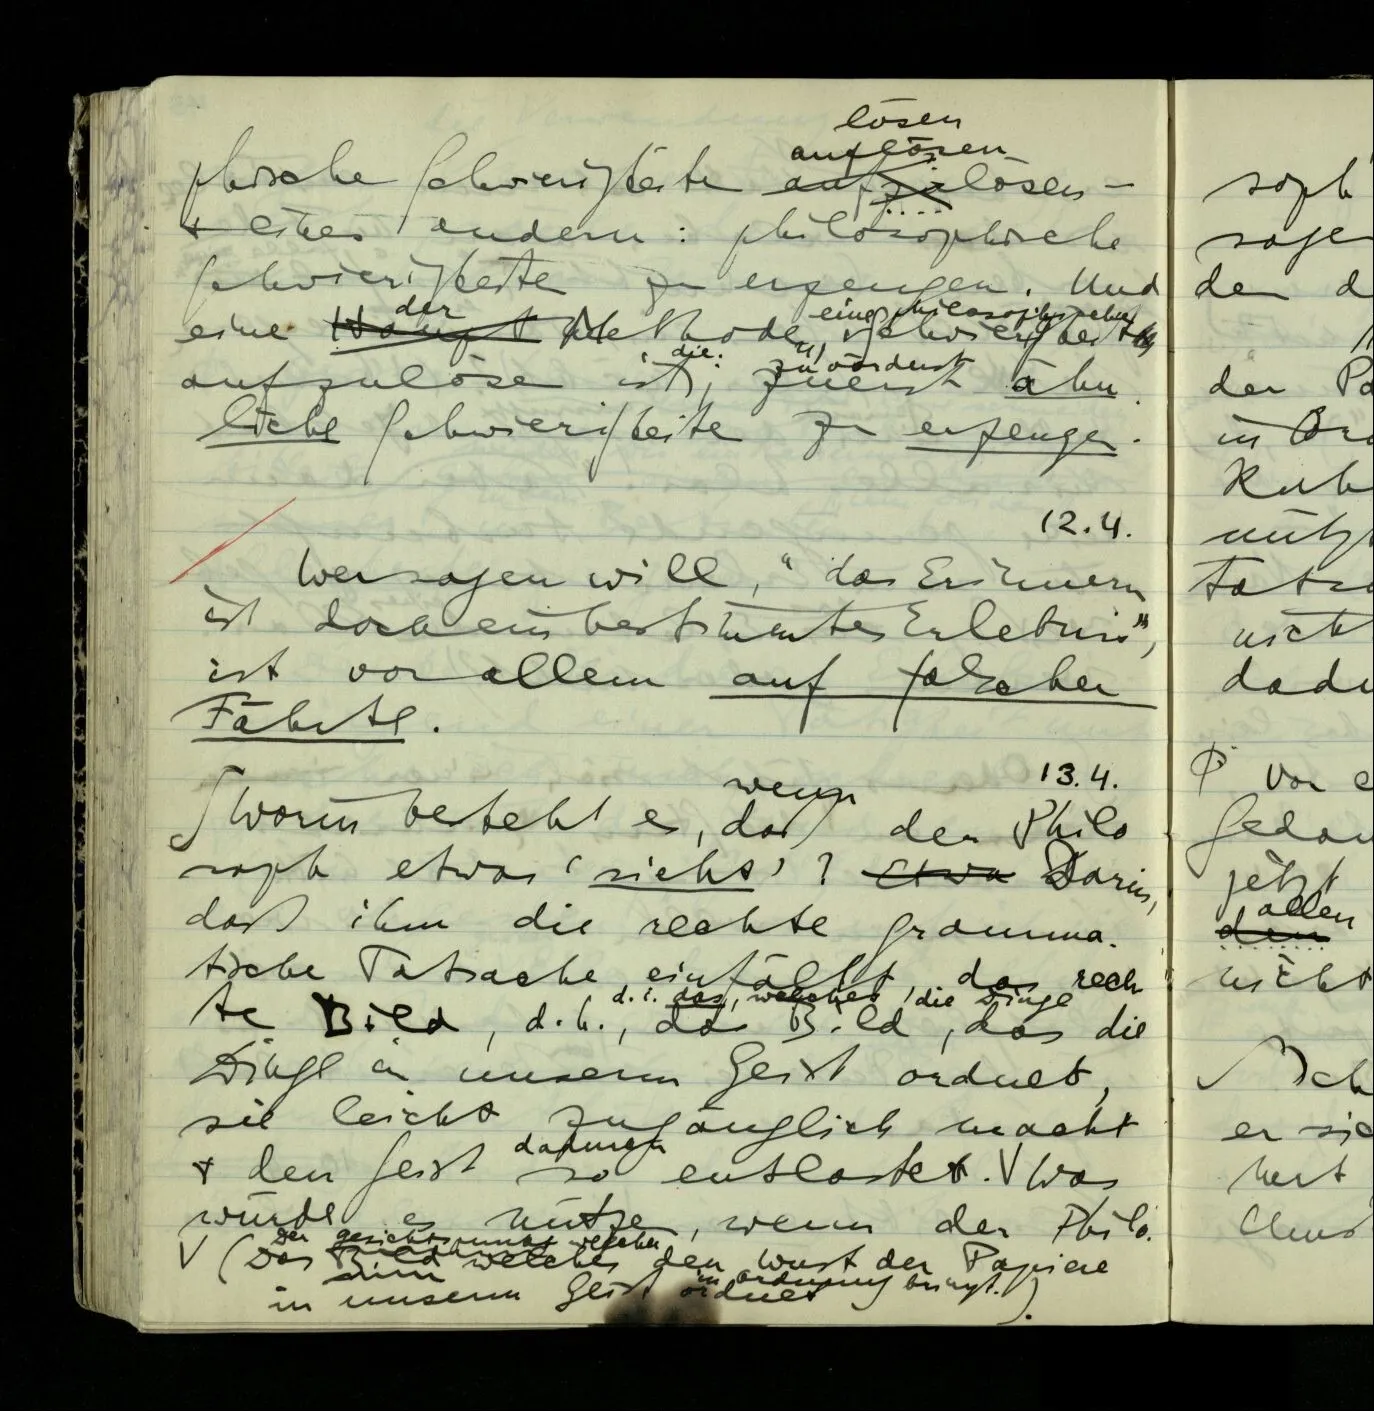 lösen
auflösen
phische Schwierigkeiten aufzulösen –
+ eines andern: philosophische
Schwierigkeiten zu erzeugen. Und
der eine philosophische
eine Haupt Methode, Schwierigkeiten
die: zuvörderst
aufzulösen ist, zuerst ähn-
liche Schwierigkeiten zu erzeugen.
12.4.
Wer sagen will, "das Erinnern
ist doch ein bestimmtes Erlebnis",
ist vor allem auf falscher
Fährte.
13.4.
wenn
Worin besteht es, daß der Philo
soph etwas 'sieht'? Etwa Darin,
daß ihm die rechte gramma-
tische Tatsache einfällt, das rech
d.i. das, welches die Dinge
te Bild, d.h., das Bild, das die
Dinge in unserm Geist ordnet,
sie leicht zugänglich macht
dadurch
+ den Geist so entlastet. V Was
würde es nützen, wenn der Philo-
der Gesichtspunkt welcher
V (Das Bild welches den Wust der Papiere
in Ordnung bringt.)
in unserm Geist ordnet
soph
sage
den d
der Pa
in Ord
Ruh
nütz
Tatsa
nicht
dadu
Vor e
Gedan
jetzt
allen
den
nicht
Ich
er sie